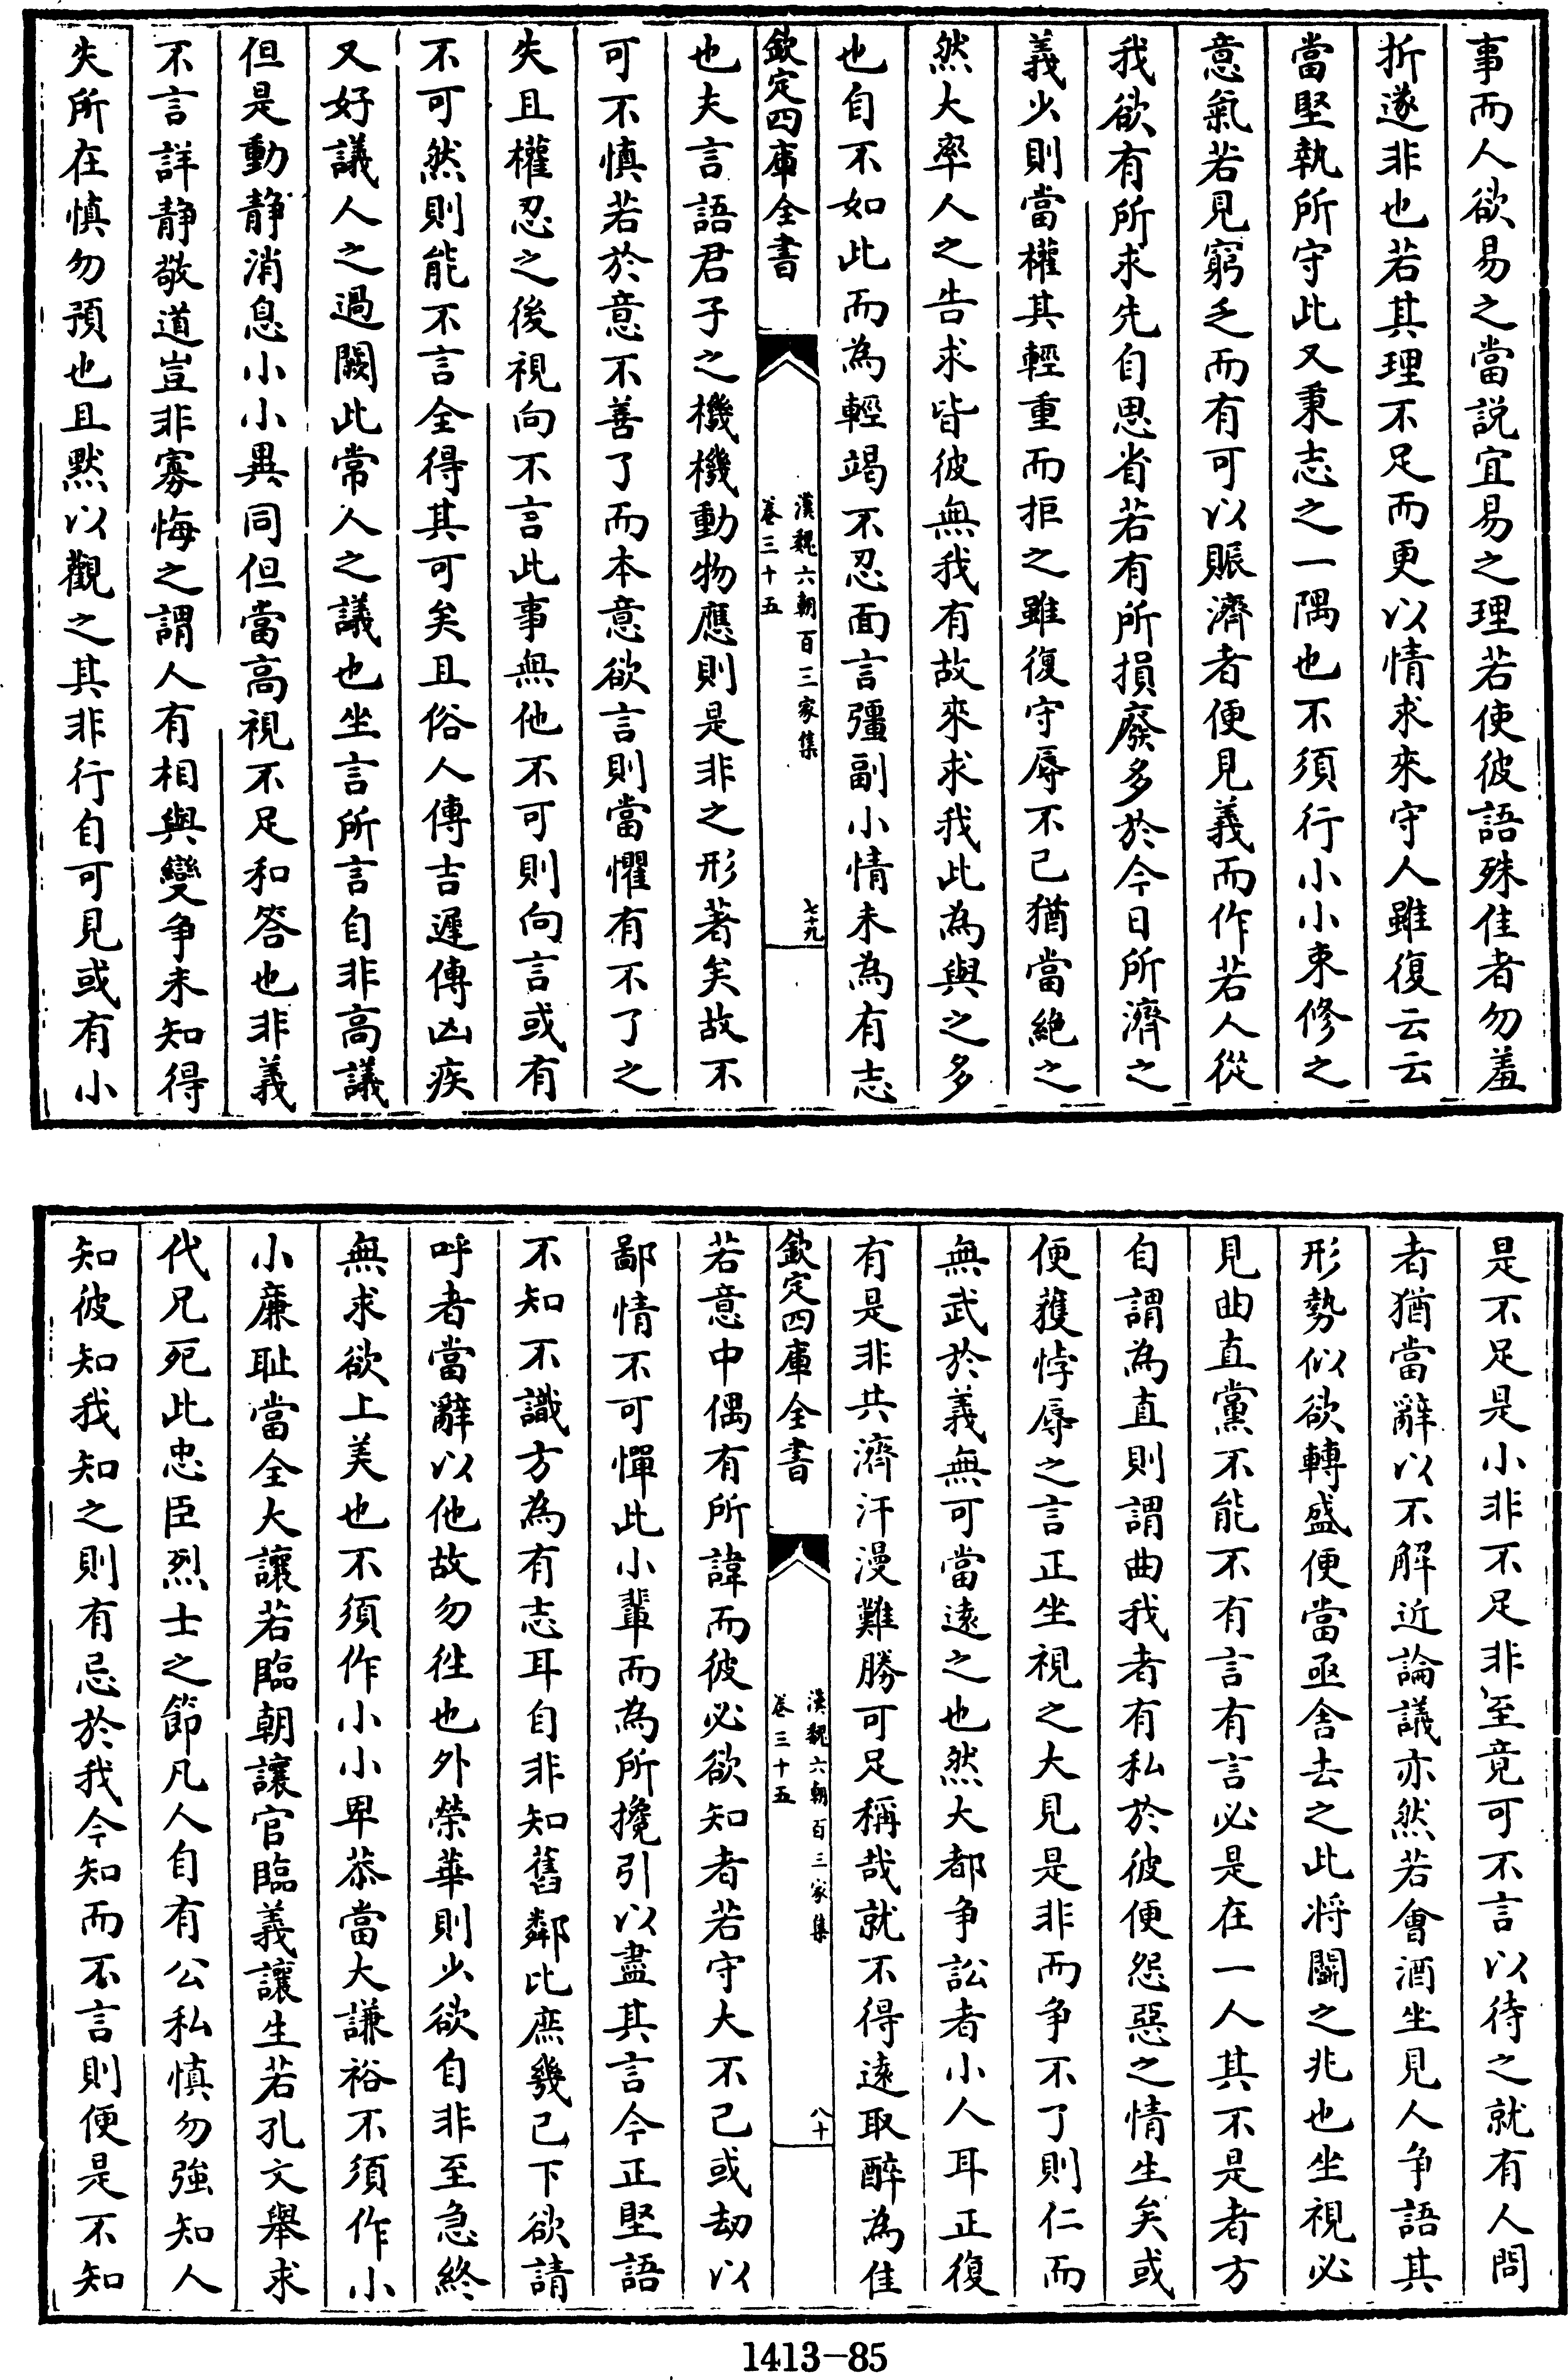 事而人欲易之當説宜易之理若使彼語殊佳者勿羞
折遂非也若其理不足而更以情求來守人雖復云云
當堅執所守此又秉志之一隅也不須行小小束修之
意氣若見窮乏而有可以賑濟者便見義而作若人從
我欲有所求先自思省若有所損廢多於今日所濟之
義少則當權其輕重而拒之雖復守辱不已猶當絶之
然大率人之告求皆彼無我有故來求我此為與之多
也自不如此而為輕竭不忍面言彊副小情未為有志
欽定四庫全書
漢魏六朝百三家集
卷三十五
七十九
也夫言語君子之機機動物應則是非之形著矣故不
可不慎若於意不善了而本意欲言則當懼有不了之
失且權忍之後視向不言此事無他不可則向言或有
不可然則能不言全得其可矣且俗人傳吉遲傳凶疾
又好議人之過闕此常人之議也坐言所言自非高議
但是動静消息小小異同但當高視不足和答也非義
不言詳静敬道豈非寡悔之謂人有相與變争未知得
失所在慎勿預也且黙以觀之其非行自可見或有小
是不足是小非不足非至竟可不言以待之就有人問
者猶當辭以不解近論議亦然若會酒坐見人争語其
形勢似欲轉盛便當亟舍去之此將鬭之兆也坐視必
見曲直黨不能不有言有言必是在一人其不是者方
自謂為直則謂曲我者有私於彼便怨惡之情生矣或
便獲悖辱之言正坐視之大見是非而争不了則仁而
無武於義無可當逺之也然大都争訟者小人耳正復
有是非共濟汗漫難勝可足稱哉就不得逺取醉為佳
欽定四庫全書
漢魏六朝百三家集
卷三十五
八十
若意中偶有所諱而彼必欲知者若守大不已或劫以
鄙情不可憚此小輩而為所攙引以盡其言今正堅語
不知不識方為有志耳自非知舊鄰比庶幾已下欲請
呼者當辭以他故勿徃也外榮華則少欲自非至急終
無求欲上美也不須作小小卑恭當大謙裕不須作小
小亷耻當全大讓若臨朝讓官臨義讓生若孔文舉求
代兄死此忠臣烈士之節凡人自有公私慎勿強知人
知彼知我知之則有忌於我今知而不言則便是不知
1413—85